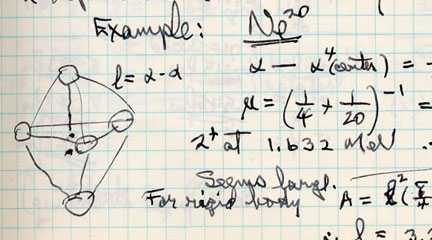 Example: Ne²⁰
l = α - α
α — α⁴ (center) = -
μ = (1/4 + 1/20)⁻¹ =
2⁺ at 1.632 MeV
Seems large.
For rigid body A =